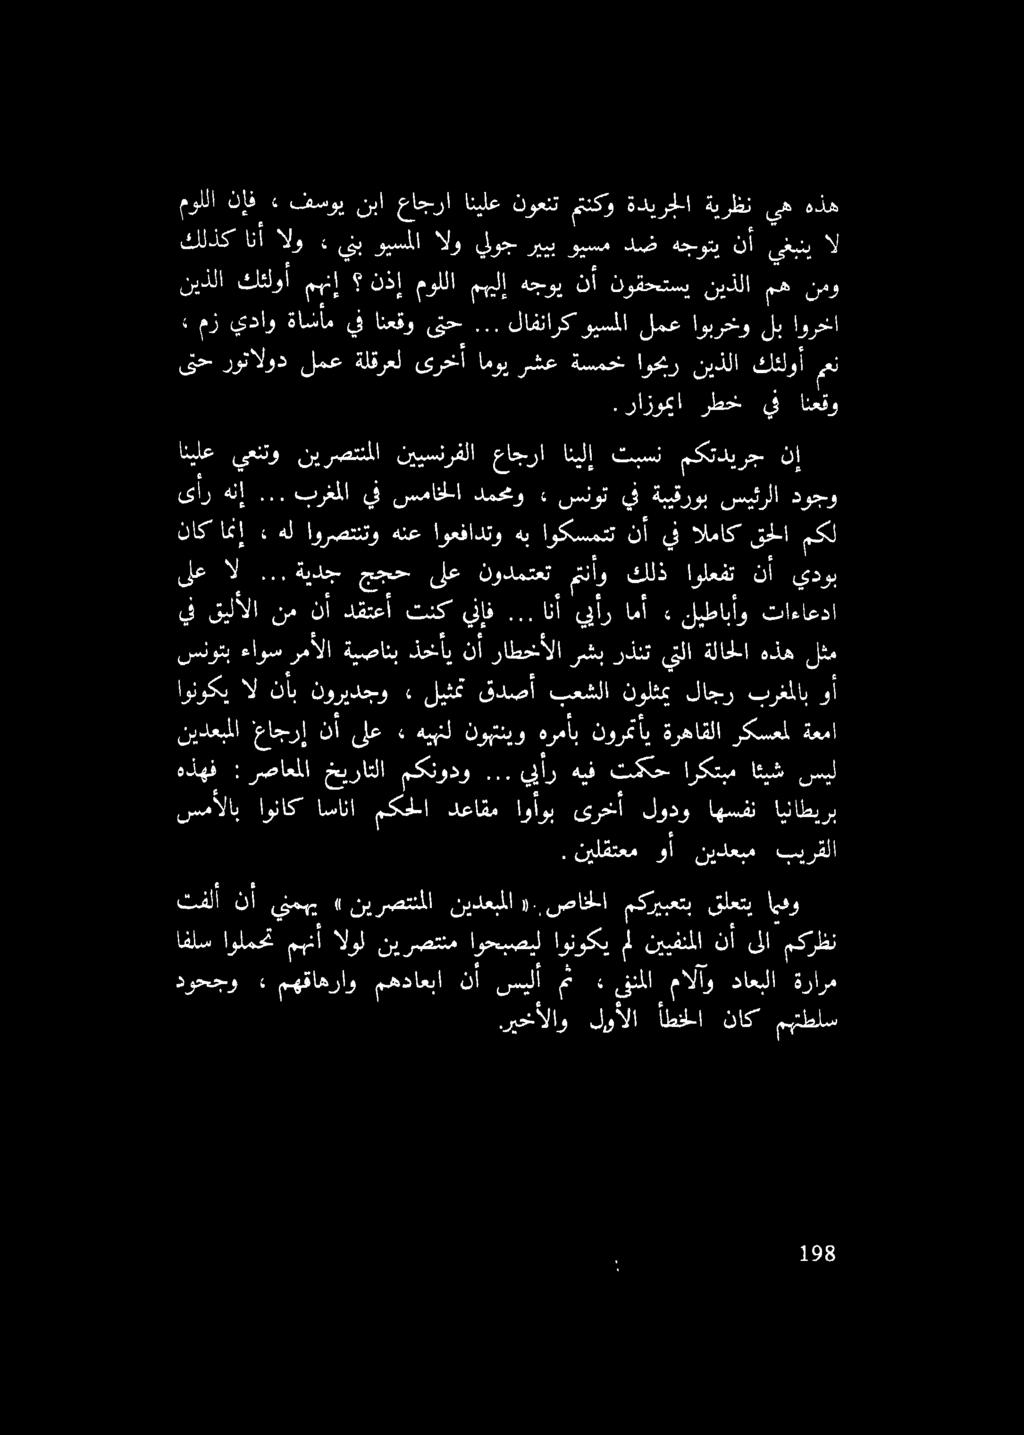 هذه هي نظرية الجريدة وكنتم تنعون علينا ارجاع ابن يوسف ، فإن اللوم
لا ينبغي أن يتوجه ضد مسيو بيير جولي ولا المسيو بني ، ولا أنا كذلك
ومن هم الذين يستحقون أن يوجه إليهم اللوم إذن ؟ إنهم أولئك الذين
اخروا بل وخربوا عمل المسيو كرانفال ... حتى وقعنا في مأساة وادي زم ،
نعم أولئك الذين ربحوا خمسة عشر يوما أخرى لعرقلة عمل دولاتور حتى
وقعنا في خطر ايموزار .
إن جريدتكم نسبت إلينا ارجاع الفرنسيين المنتصرين وتنعي علينا
وجود الرئيس بورقيبة في تونس ، ومحمد الخامس في المغرب ... إنه رأى
لكم الحق كاملا في أن تتمسكوا به وتدافعوا عنه وتنتصروا له ، إنما كان
بودي أن تفعلوا ذلك وأنتم تعتمدون على حجج جدية ... لا على
ادعاءات وأباطيل ، أما رأيي أنا ... فإني كنت أعتقد أن من الأليق في
مثل هذه الحالة التي تنذر بشر الأخطار أن يأخذ بناصية الأمر سواء بتونس
أو بالمغرب رجال يمثلون الشعب أصدق تمثيل ، وجديرون بأن لا يكونوا
امعة لمعسكر القاهرة يأتمرون بأمره وينتهون لنهيه ، على أن إرجاع المبعدين
ليس شيئا مبتكرا حكمت فيه رأيي ... ودونكم التاريخ المعاصر : فهذه
بريطانيا نفسها ودول أخرى بوأوا مقاعد الحكم اناسا كانوا بالأمس
القريب مبعدين أو معتقلين .
وفيما يتعلق بتعبيركم الخاص : «المبعدين المنتصرين» يهمني أن ألفت
نظركم الى أن المنفيين لم يكونوا ليصبحوا منتصرين لولا أنهم تحملوا سلفا
مرارة البعاد وآلام المنفى ، ثم أليس أن ابعادهم وارهاقهم ، وجحود
سلطتهم كان الخطأ الأول والأخير.
198